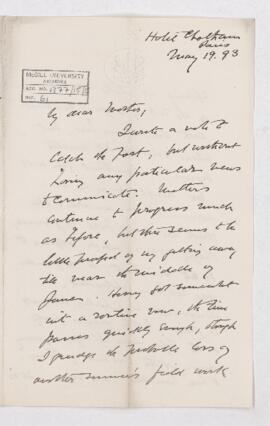 Hotel Chatham
Paris
May 19. 93
McGILL UNIVERSITY
ARCHIVES
ACC. NO.
REF. 61
My dear
I write a note to
catch the post, but without
having any particular news
to communicate. Matters
continue to progress much
as before, but there seems to be
little prospect of my getting away
till near the middle of
June. Having got somewhat
into a routine now, the time
passes quickly enough, though
I grudge the probable loss of
another summer's field work